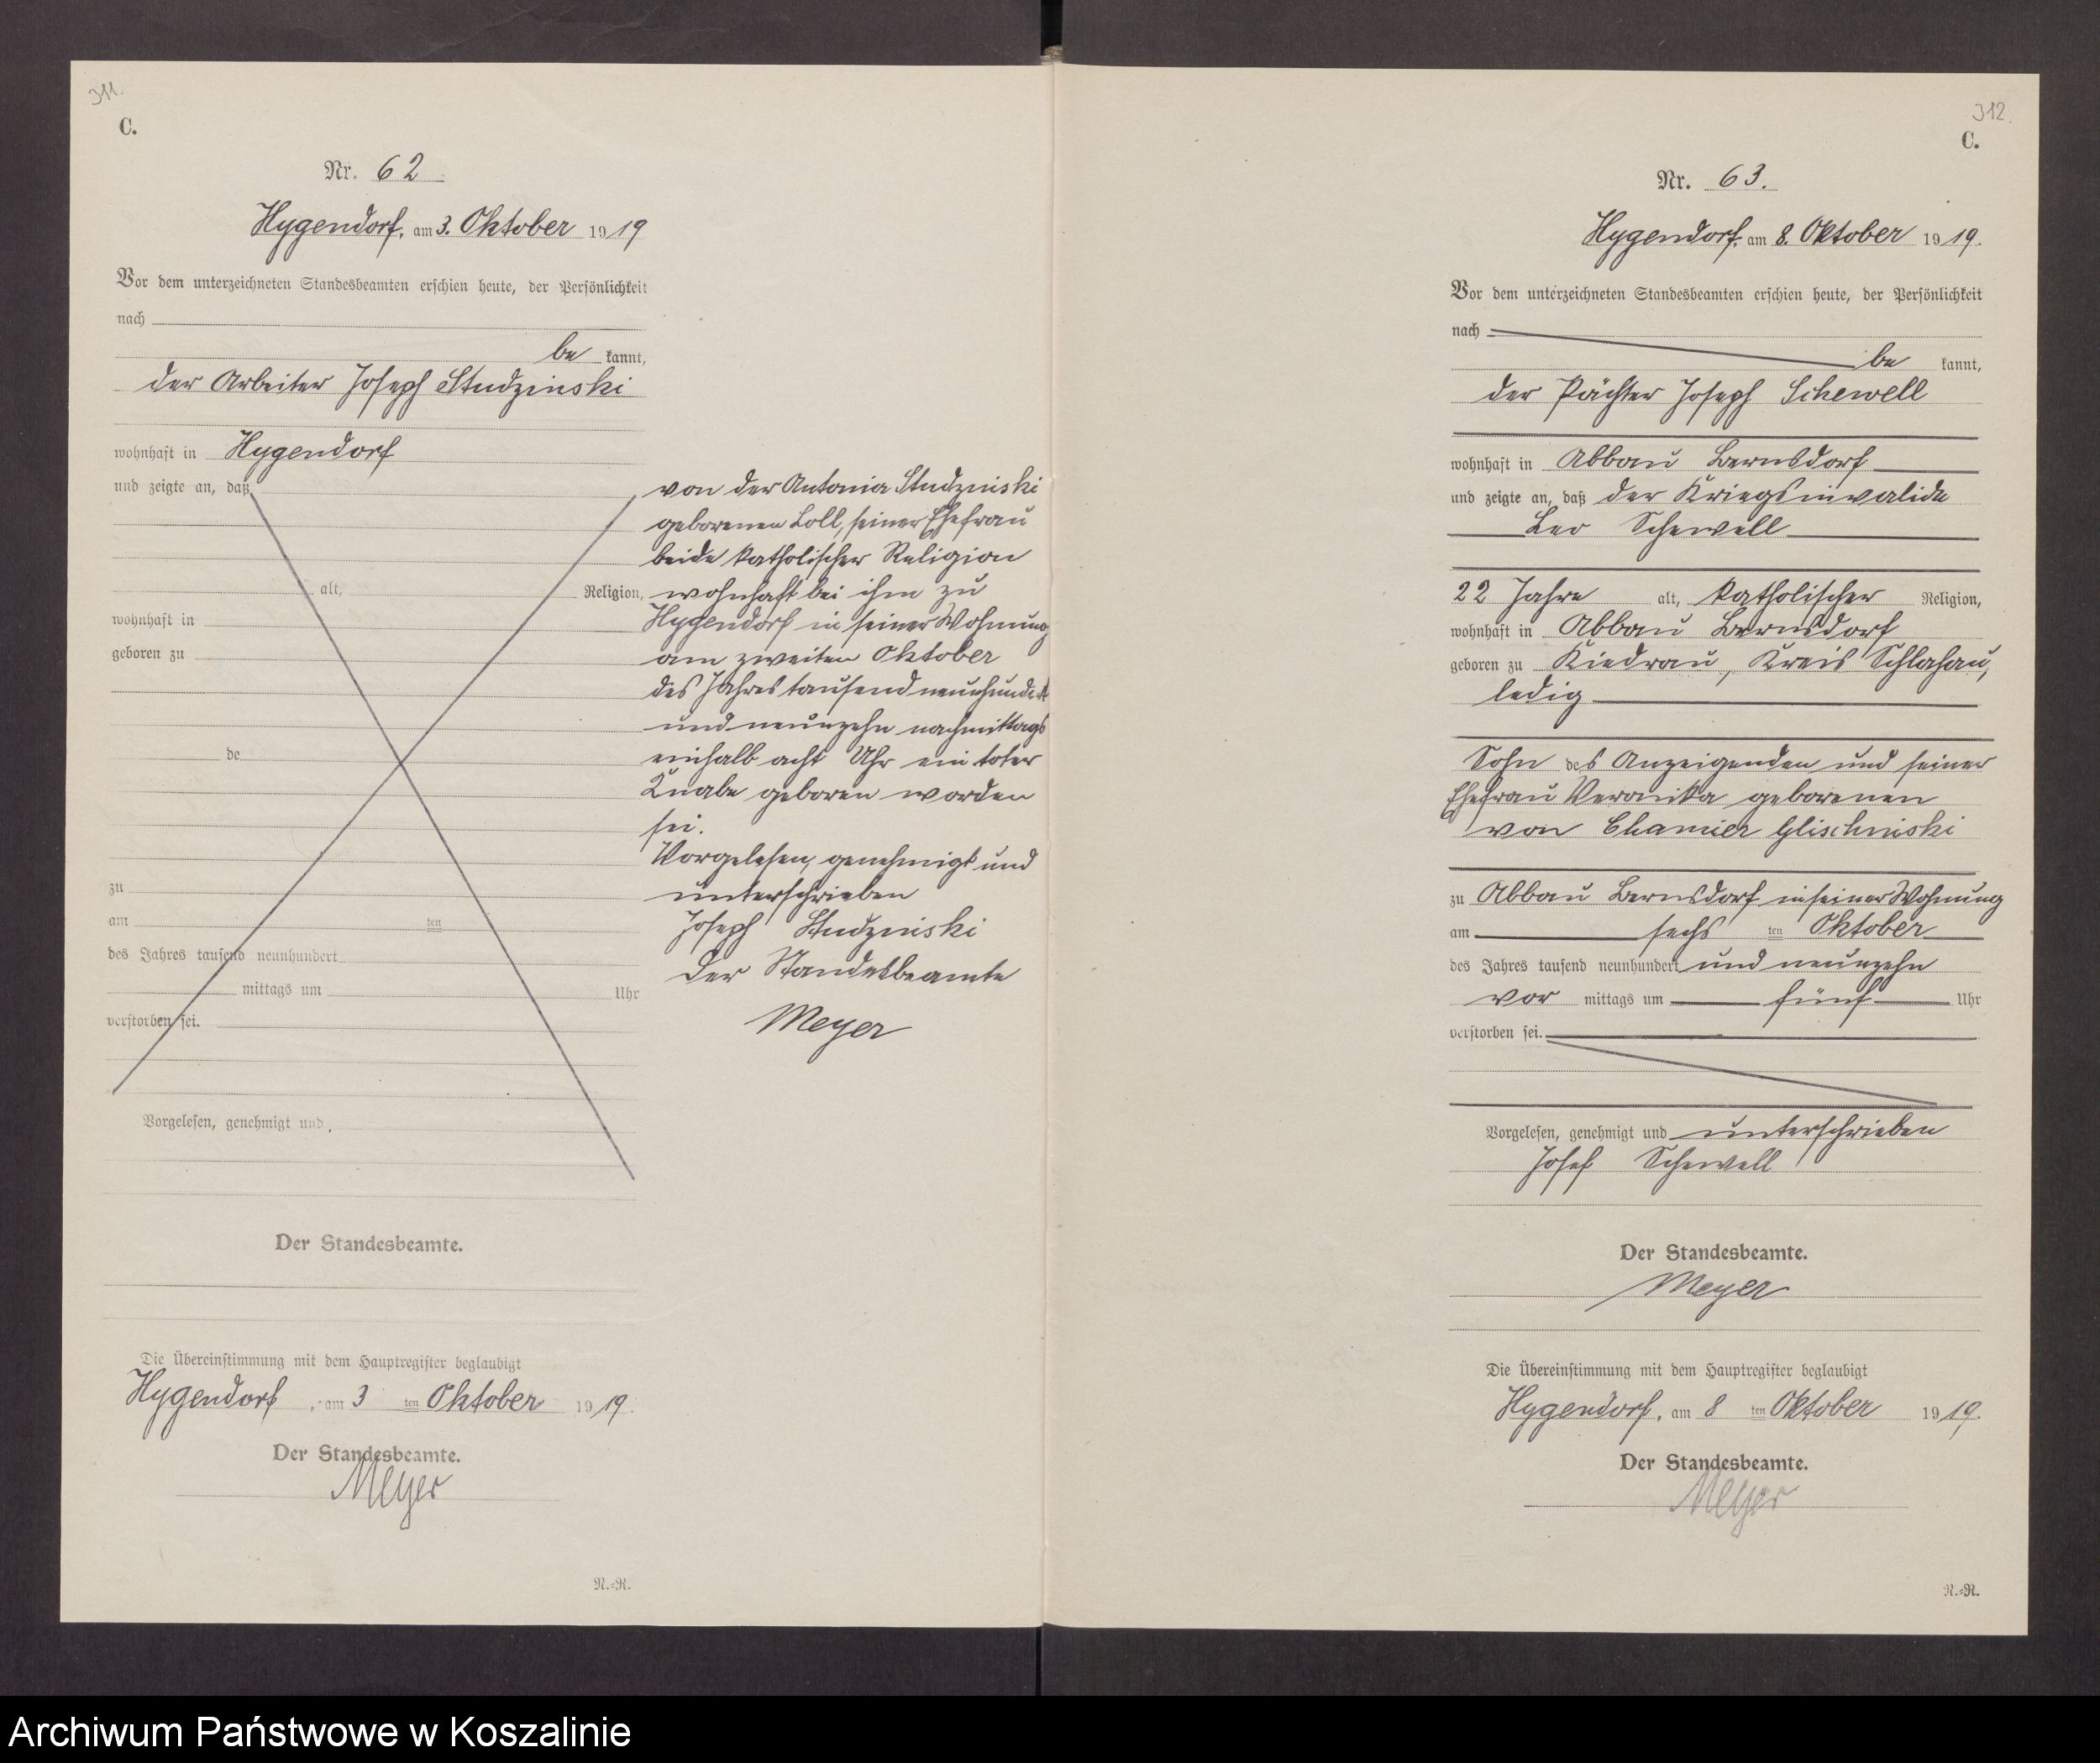 311.
C.
Nr. 62
Hygendorf, am 3. Oktober 1919
Vor dem unterzeichneten Standesbeamten erschien heute, der Persönlichkeit
nach
be kannt,
der Arbeiter Joseph Studzinski
wohnhaft in Hygendorf
und zeigte an, daß
alt, Religion,
wohnhaft in
geboren zu
de
zu
am ten
des Jahres tausend neunhundert
mittags um Uhr
verstorben sei.
Vorgelesen, genehmigt und
von der Antonia Studzinski
geborenen Loll, seiner Ehefrau
beide katholischer Religion
wohnhaft bei ihm zu
Hygendorf in seiner Wohnung
am zweiten Oktober
des Jahres tausend neunhundert
und neunzehn nachmittags
einhalb acht Uhr ein toter
Knabe geboren worden
sei.
Vorgelesen, genehmigt und
unterschrieben
Joseph Studzinski
Der Standesbeamte
Meyer
Der Standesbeamte.
Die Übereinstimmung mit dem Hauptregister beglaubigt
Hygendorf, am 3 ten Oktober 1919.
Der Standesbeamte.
Meyer
N.-R.
312.
C.
Nr. 63.
Hygendorf, am 8. Oktober 1919.
Vor dem unterzeichneten Standesbeamten erschien heute, der Persönlichkeit
nach
be kannt,
der Pächter Joseph Schewell
wohnhaft in Abbau Bernsdorf
und zeigte an, daß der Kriegsinvalide
Leo Schewell
22 Jahre alt, katholischer Religion,
wohnhaft in Abbau Bernsdorf
geboren zu Kiedrau, Kreis Schlochau,
ledig
Sohn des Anzeigenden und seiner
Ehefrau Veronika geborenen
von Chamier Glischinski
zu Abbau Bernsdorf in seiner Wohnung
am sechs ten Oktober
des Jahres tausend neunhundert und neunzehn
vor mittags um fünf Uhr
verstorben sei.
Vorgelesen, genehmigt und unterschrieben
Josef Schewell
Der Standesbeamte.
Meyer
Die Übereinstimmung mit dem Hauptregister beglaubigt
Hygendorf, am 8 ten Oktober 1919.
Der Standesbeamte.
Meyer
N.-R.
Archiwum Państwowe w Koszalinie